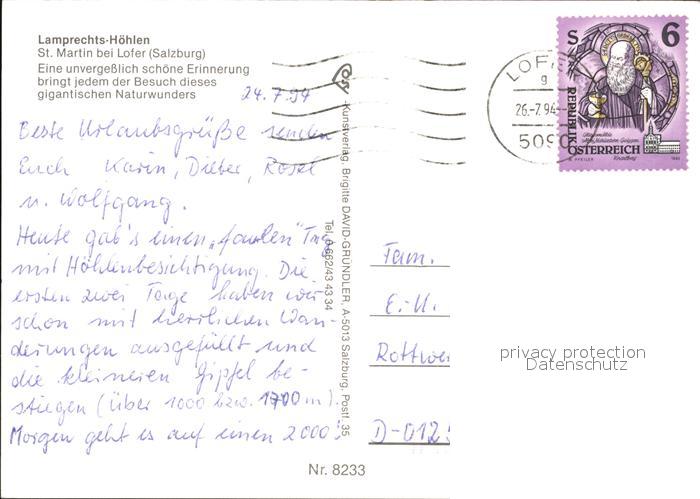 Lamprechts-Höhlen
St. Martin bei Lofer (Salzburg)
Eine unvergeßlich schöne Erinnerung
bringt jedem der Besuch dieses
gigantischen Naturwunders
24.7.94
Beste Urlaubsgrüße senden
Euch Karin, Dieter, Rosel
u. Wolfgang.
Heute gab's einen „faulen" Tag
mit Höhlenbesichtigung. Die
ersten zwei Tage haben wir
schon mit herrlichen Wan-
derungen ausgefüllt und
die kleineren Gipfel be-
stiegen (über 1000 bzw. 1700 m).
Morgen geht es auf einen 2000
Kunstverlag, Brigitte DAVID-GRÜNDLER, A-5013 Salzburg, Postf. 35
Tel. 0 662/43 43 34
Nr. 8233
LOFER
g
26.-7.94-
5090
S 6
REPUBLIK
ÖSTERREICH
Fam.
E.u.
Rottwei
D-012
privacy protection
Datenschutz